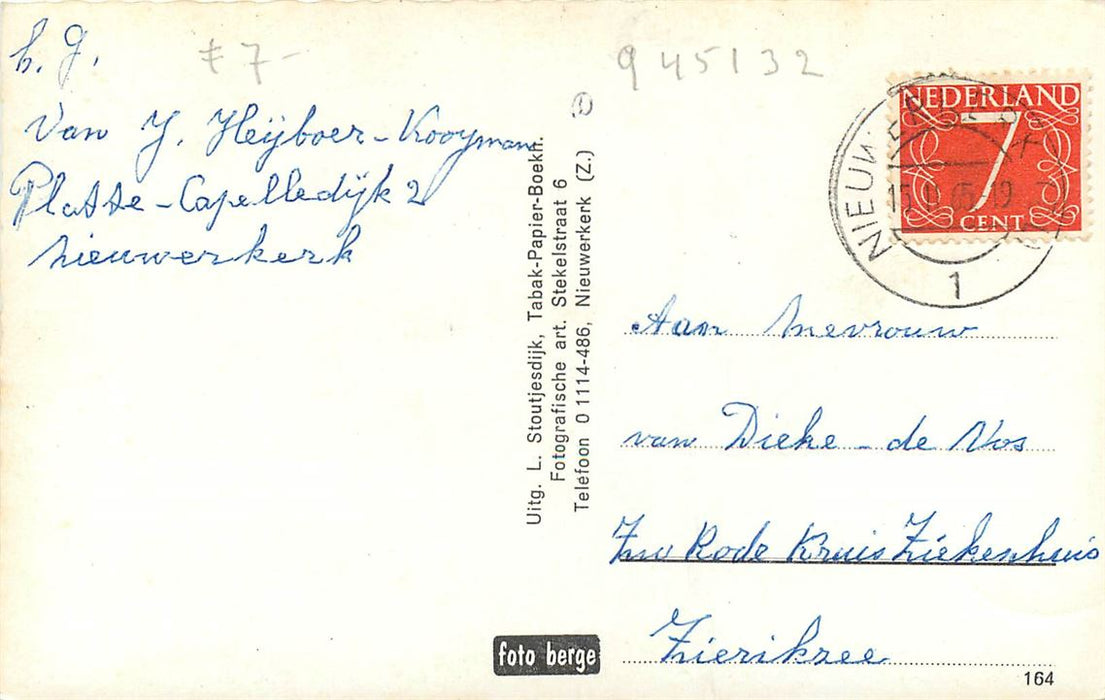 h. g.
f 7-
Van J. Heijboer-Kooyman
Platte-Capelledijk 2
Nieuwerkerk
Uitg. L. Stoutjesdijk, Tabak-Papier-Boekh.
Fotografische art. Stekelstraat 6
Telefoon 01114-486, Nieuwerkerk (Z.)
foto berge
945132
NEDERLAND
7
CENT
NIEUWERKERK
1
Aan Mevrouw
van Dieke - de Vos
Zw Rode Kruis Ziekenhuis
Zierikzee
164